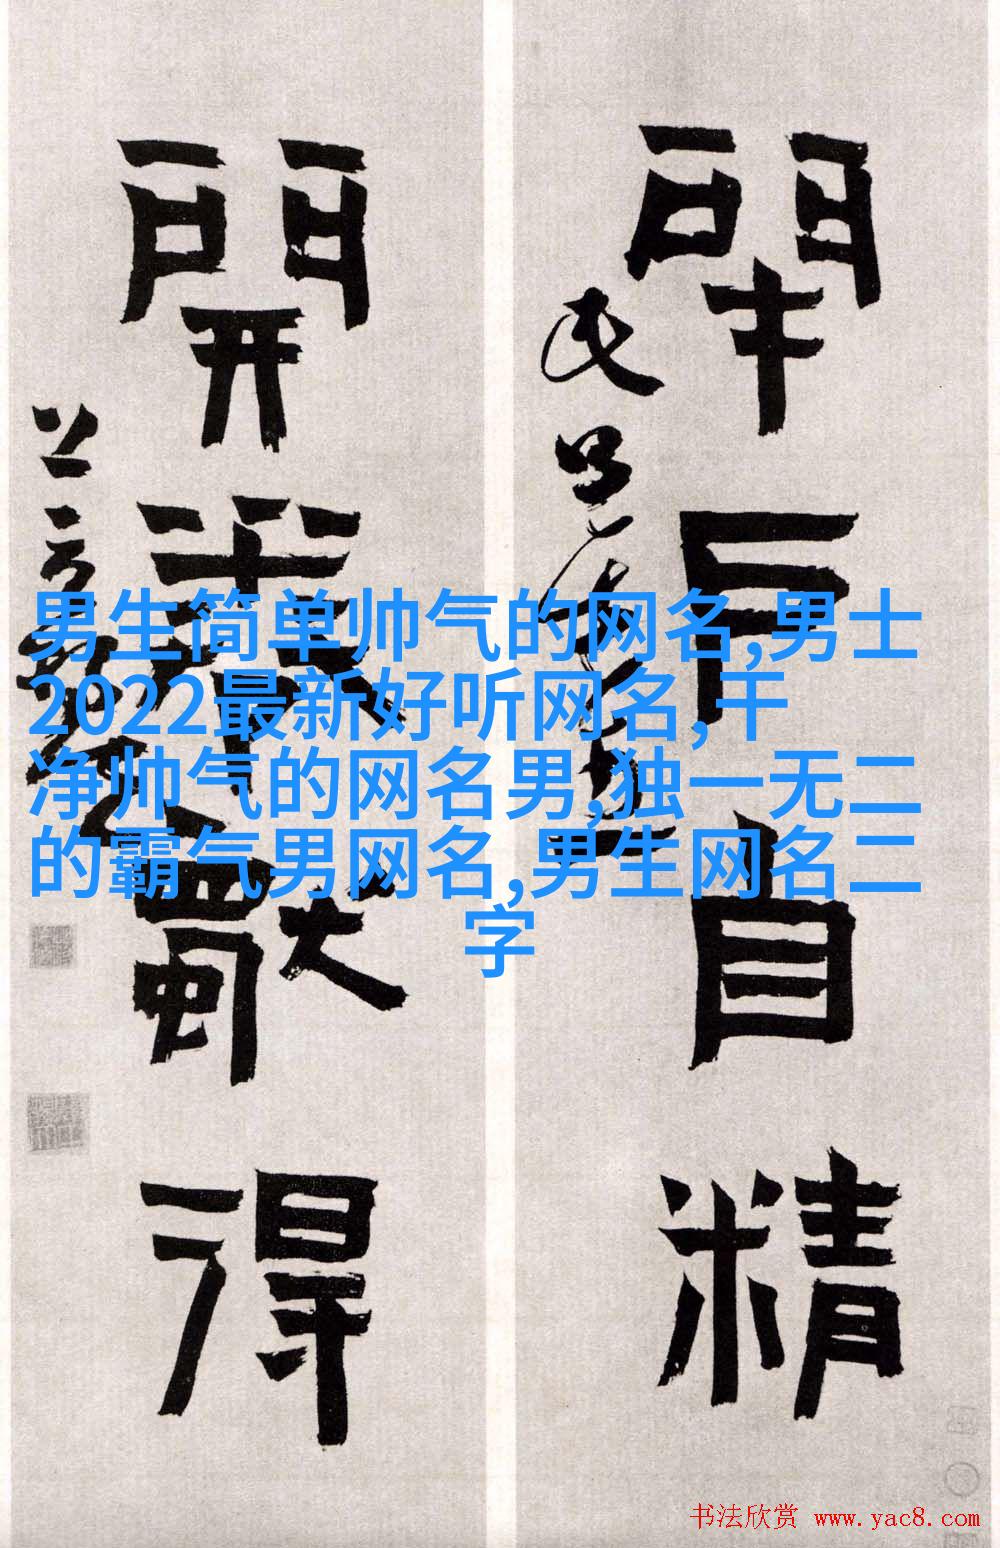 閉戶自精
開卷獨得
男生简单帅气的网名,男士
2022最新好听网名,干
净帅气的网名男,独一无二
的霸气男网名,男生网名二
字
书法欣赏 www.yac8.com